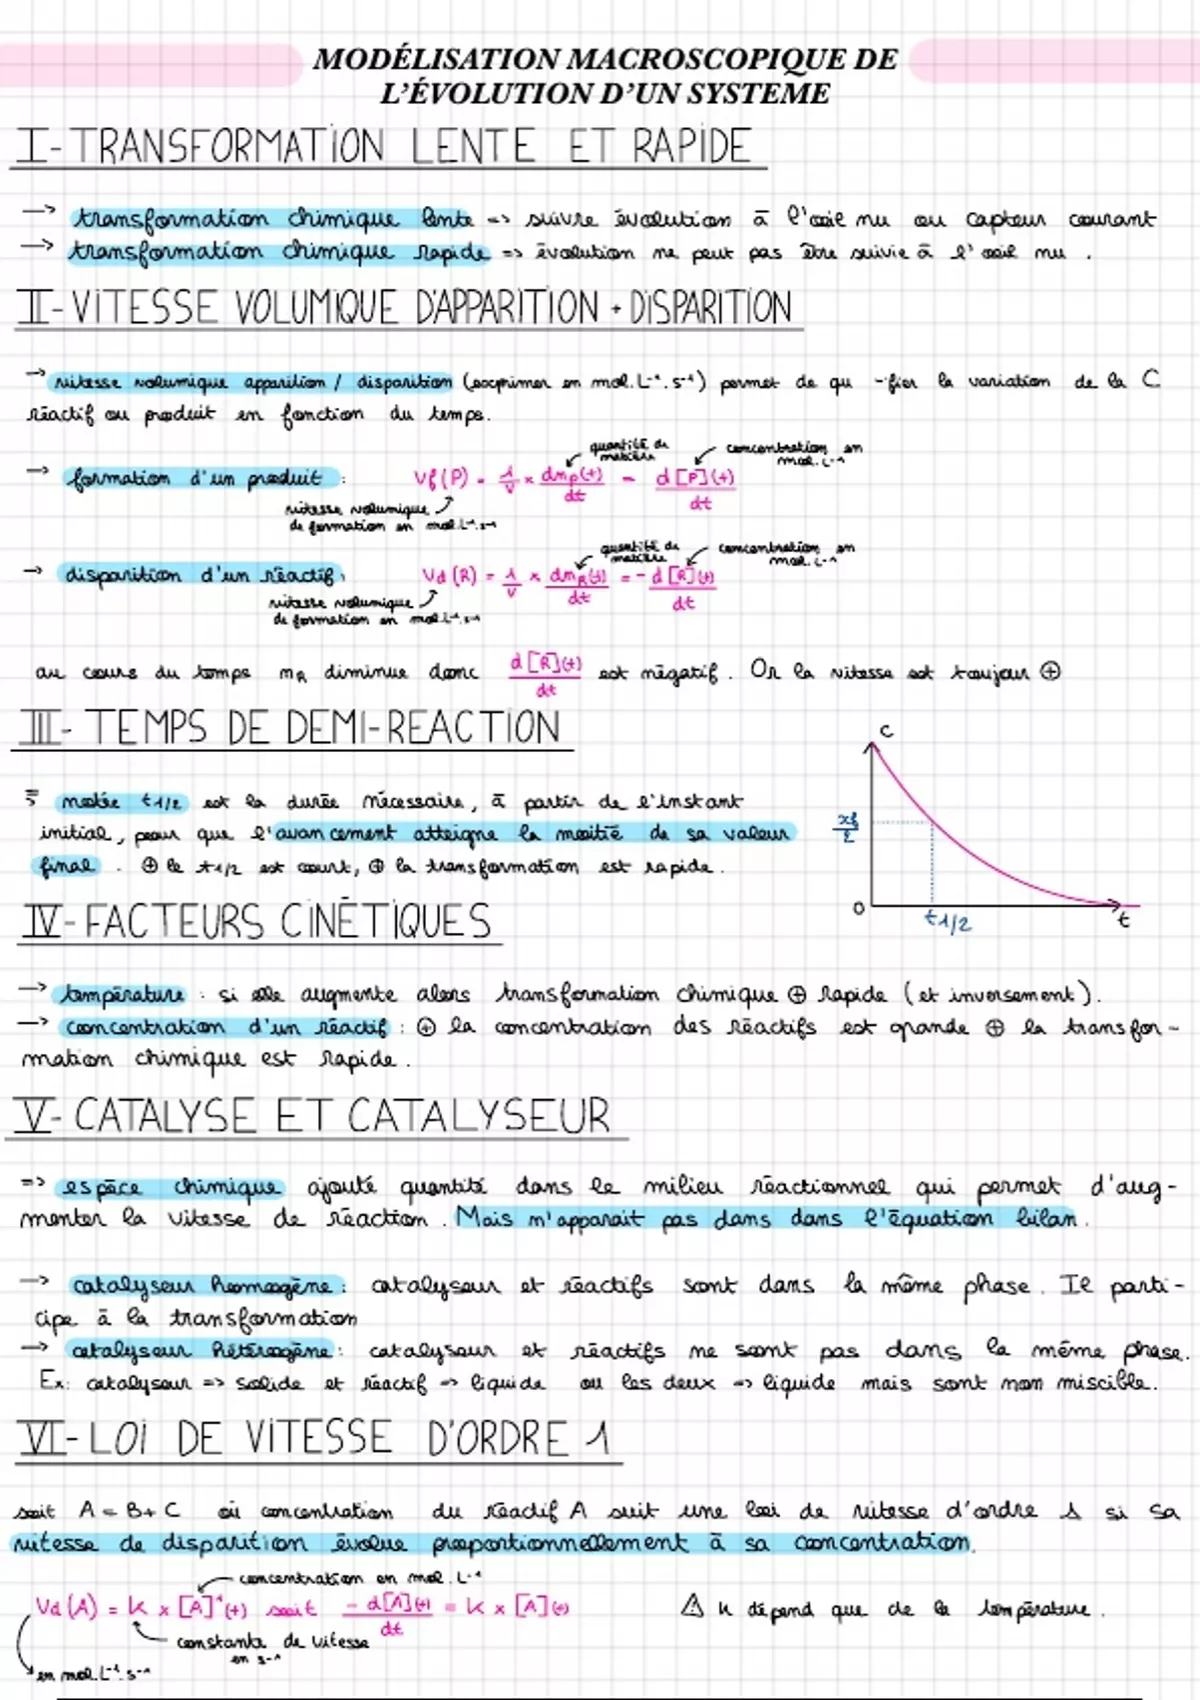 MODÉLISATION MACROSCOPIQUE DE
L'ÉVOLUTION D'UN SYSTEME
I- TRANSFORMATION LENTE ET RAPIDE
→ transformation chimique lente => suivre évolution à l'oeil nu ou capteur courant
→ transformation chimique rapide => évolution ne peut pas être suivie à l'oeil nu .
II- VITESSE VOLUMIQUE D'APPARITION + DISPARITION
→ vitesse volumique apparition / disparition (exprimer en mol.L⁻¹.s⁻¹) permet de qu -ifier la variation de la C
réactif ou produit en fonction du temps.
quantité de matière concentration en mol.L⁻¹
→ formation d'un produit : Vf(P) = 1/V × dnP(t)/dt = d[P](t)/dt
vitesse volumique
de formation en mol.L⁻¹.s⁻¹
quantité de matière concentration en mol.L⁻¹
→ disparition d'un réactif : Vd(R) = 1/V × dnR(t)/dt = - d[R](t)/dt
vitesse volumique
de formation en mol.L⁻¹.s⁻¹
au cours du temps nR diminue donc d[R](t)/dt est négatif. Or la vitesse est toujour ⊕
III- TEMPS DE DEMI-REACTION
notée t1/2 est la durée nécessaire, à partir de l'instant
initial, pour que l'avancement atteigne la moitié de sa valeur
final . ⊕ le t1/2 est court, ⊕ la transformation est rapide.
C
xf/2
0
t1/2
t
IV- FACTEURS CINÉTIQUES
→ température : si elle augmente alors transformation chimique ⊕ rapide (et inversement).
→ concentration d'un réactif : ⊕ la concentration des réactifs est grande ⊕ la transfor-
mation chimique est rapide.
V- CATALYSE ET CATALYSEUR
=> espèce chimique ajouté quantité dans le milieu réactionnel qui permet d'aug-
menter la vitesse de réaction. Mais n'apparait pas dans dans l'équation bilan.
→ catalyseur homogène : catalyseur et réactifs sont dans la même phase. Il parti-
cipe à la transformation
→ catalyseur hétérogène : catalyseur et réactifs ne sont pas dans la même phase.
Ex: catalyseur => solide et réactif => liquide ou les deux => liquide mais sont non miscible.
VI- LOI DE VITESSE D'ORDRE 1
soit A = B + C où concentration du réactif A suit une loi de vitesse d'ordre 1 si sa
vitesse de disparition évolue proportionnellement à sa concentration.
concentration en mol.L⁻¹
Vd(A) = K × [A]¹(t) soit -d[A](t)/dt = K × [A](t) ⚠ K dépend que de la température.
constante de vitesse
en s⁻¹
en mol.L⁻¹.s⁻¹